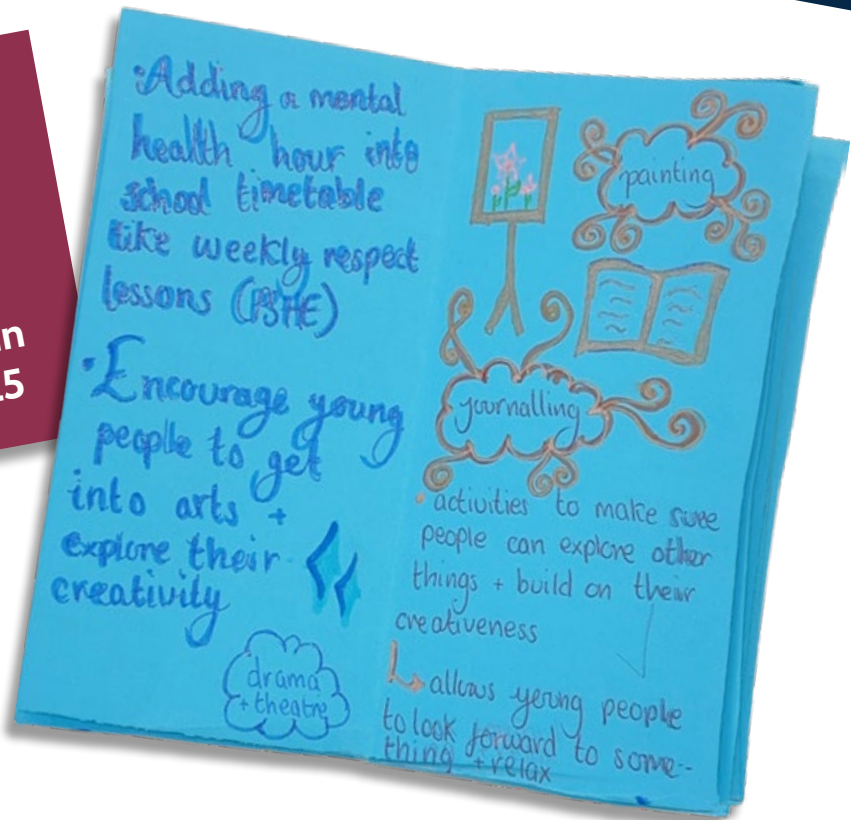 n
5
•Adding a mental
health hour into
school timetable
like weekly respect
lessons (PSHE)
•Encourage young
people to get
into arts +
explore their
creativity
drama
+ theatre
painting
journalling
• activities to make sure
people can explore other
things + build on their
creativeness
↳ allows young people
to look forward to some-
thing + relax